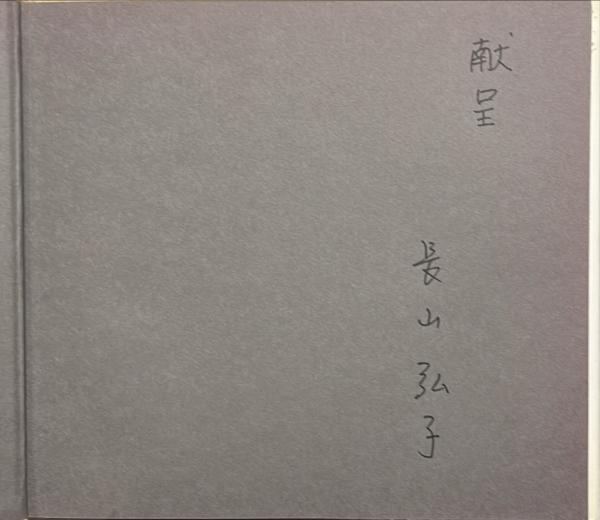 献呈
長山弘子